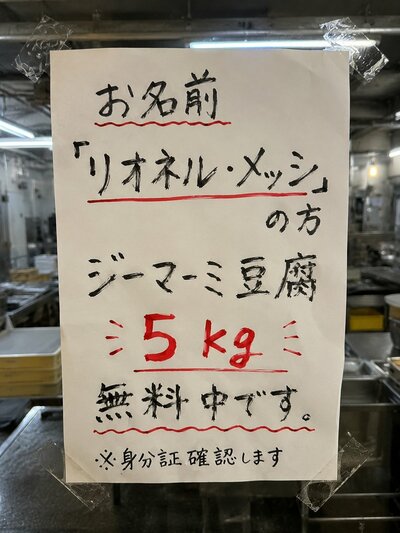 お名前
「リオネル・メッシ」
の方
ジーマーミ豆腐
5kg
無料中です。
※身分証確認します